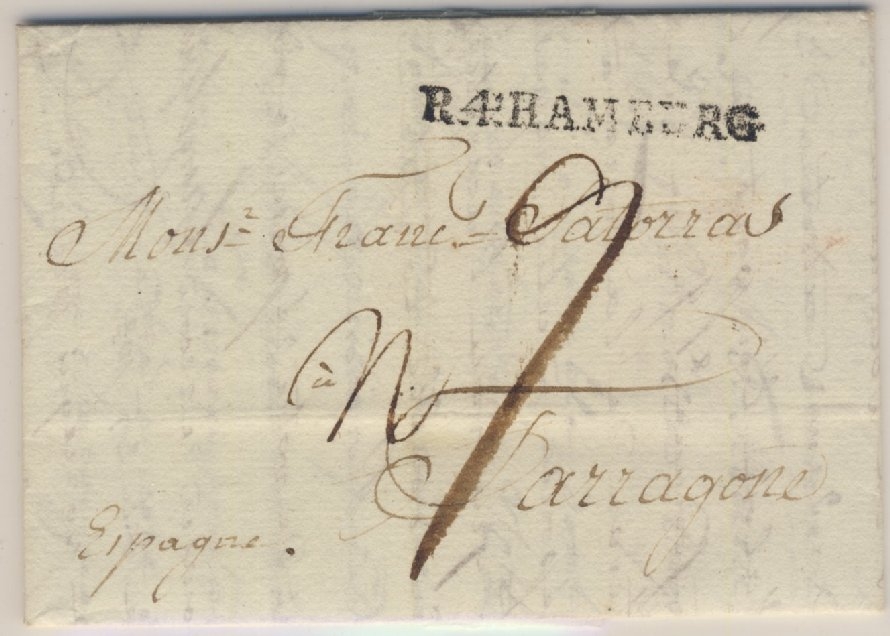 R.4. HAMBURG
Monsr. Franc. Satorras
à
Tarragone
Espagne.